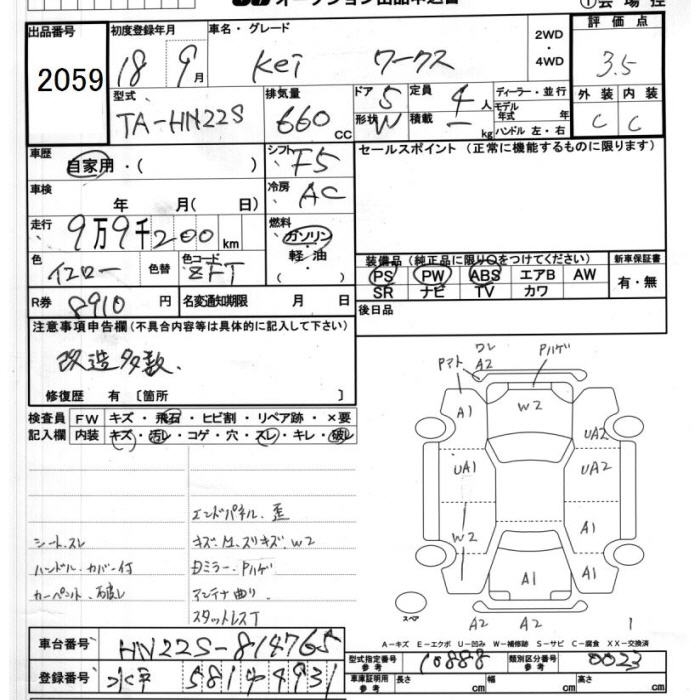 オークション出品申込書
①会場控
出品番号 2059
初度登録年月 18 9月
車名・グレード Kei ワークス
2WD・4WD
評価点 3.5
外装 C 内装 C
型式 TA-HN22S
排気量 660 CC
ドア 5 形状 W
定員 4人 積載 — kg
ディーラー・並行
モデル年式 年
ハンドル 左・右
車歴 自家用・( )
シフト F5
セールスポイント(正常に機能するものに限ります)
車検 年 月( 日)
冷房 AC
走行 9万9千200km
燃料 ガソリン・軽油・( )
色 イエロー 色替
色コード ZFT
装備品(純正品に限り○をつけてください)
PS PW ABS エアB AW
SR ナビ TV カワ
新車保証書 有・無
R券 8910円
名変通知期限 月 日
後日品
注意事項申告欄(不具合内容等は具体的に記入して下さい)
改造多数.
修復歴 有〔箇所 〕
検査員記入欄
FW キズ・飛石・ヒビ割・リペア跡・×要
内装 キズ・汚レ・コゲ・穴・スレ・キレ・破レ
エンドパネル.歪
シート.スレ
ハンドル.カバー付
Dミラー.Pハゲ
カーペント.破レ
アンテナ曲り
スタットレスT
ワレ
Pマト A2 Pハゲ
A1 W2 UA2
UA1 UA2
W2 A1
A1 A1
スペア A2 A2 1
A－キズ E－エクボ U－凹み W－補修跡 S－サビ C－腐食 XX－交換済
車台番号 HN22S-814765
型式指定番号 参考 10888
類別区分番号 参考 0023
登録番号
車庫証明用 参考 長さ cm 幅 cm 高さ cm